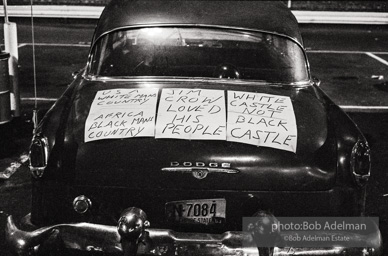 U.S.A
WHITE MANS
COUNTRY
AFRICA
BLACK MANS
COUNTRY
JIM
CROW
LOVED
HIS
PEOPLE
WHITE
CASTLE
NOT
BLACK
CASTLE
DODGE
7084
photo:Bob Adelman
©Bob Adelman Estate